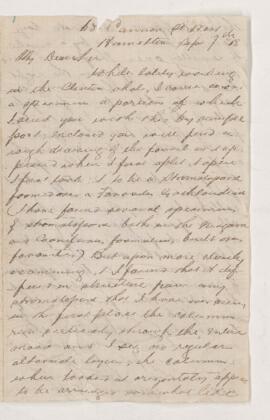 63 Cannon St East
Hamilton Sep 9th
My Dear Sir
While lately working
in the Clinton shol, I came across
a specimen a portion of which
I send you with this by sample
post, enclosed you will find a
rough drawing of the fossil as it ap
peared when I first split it open
I first took it to be a Stromatopora
formed over a Favosites
I have found several specimens
of stromatopora both in the Niagara
and formation built over
favosites But upon more closely
examining it I found that it dif
fered in structure from any
stromatopora that I have ever seen,
in the first place the columns
run perfectly through the entire
mass and I see no regular
alternate layers, the columns
when looked at
to be arranged somewhat like